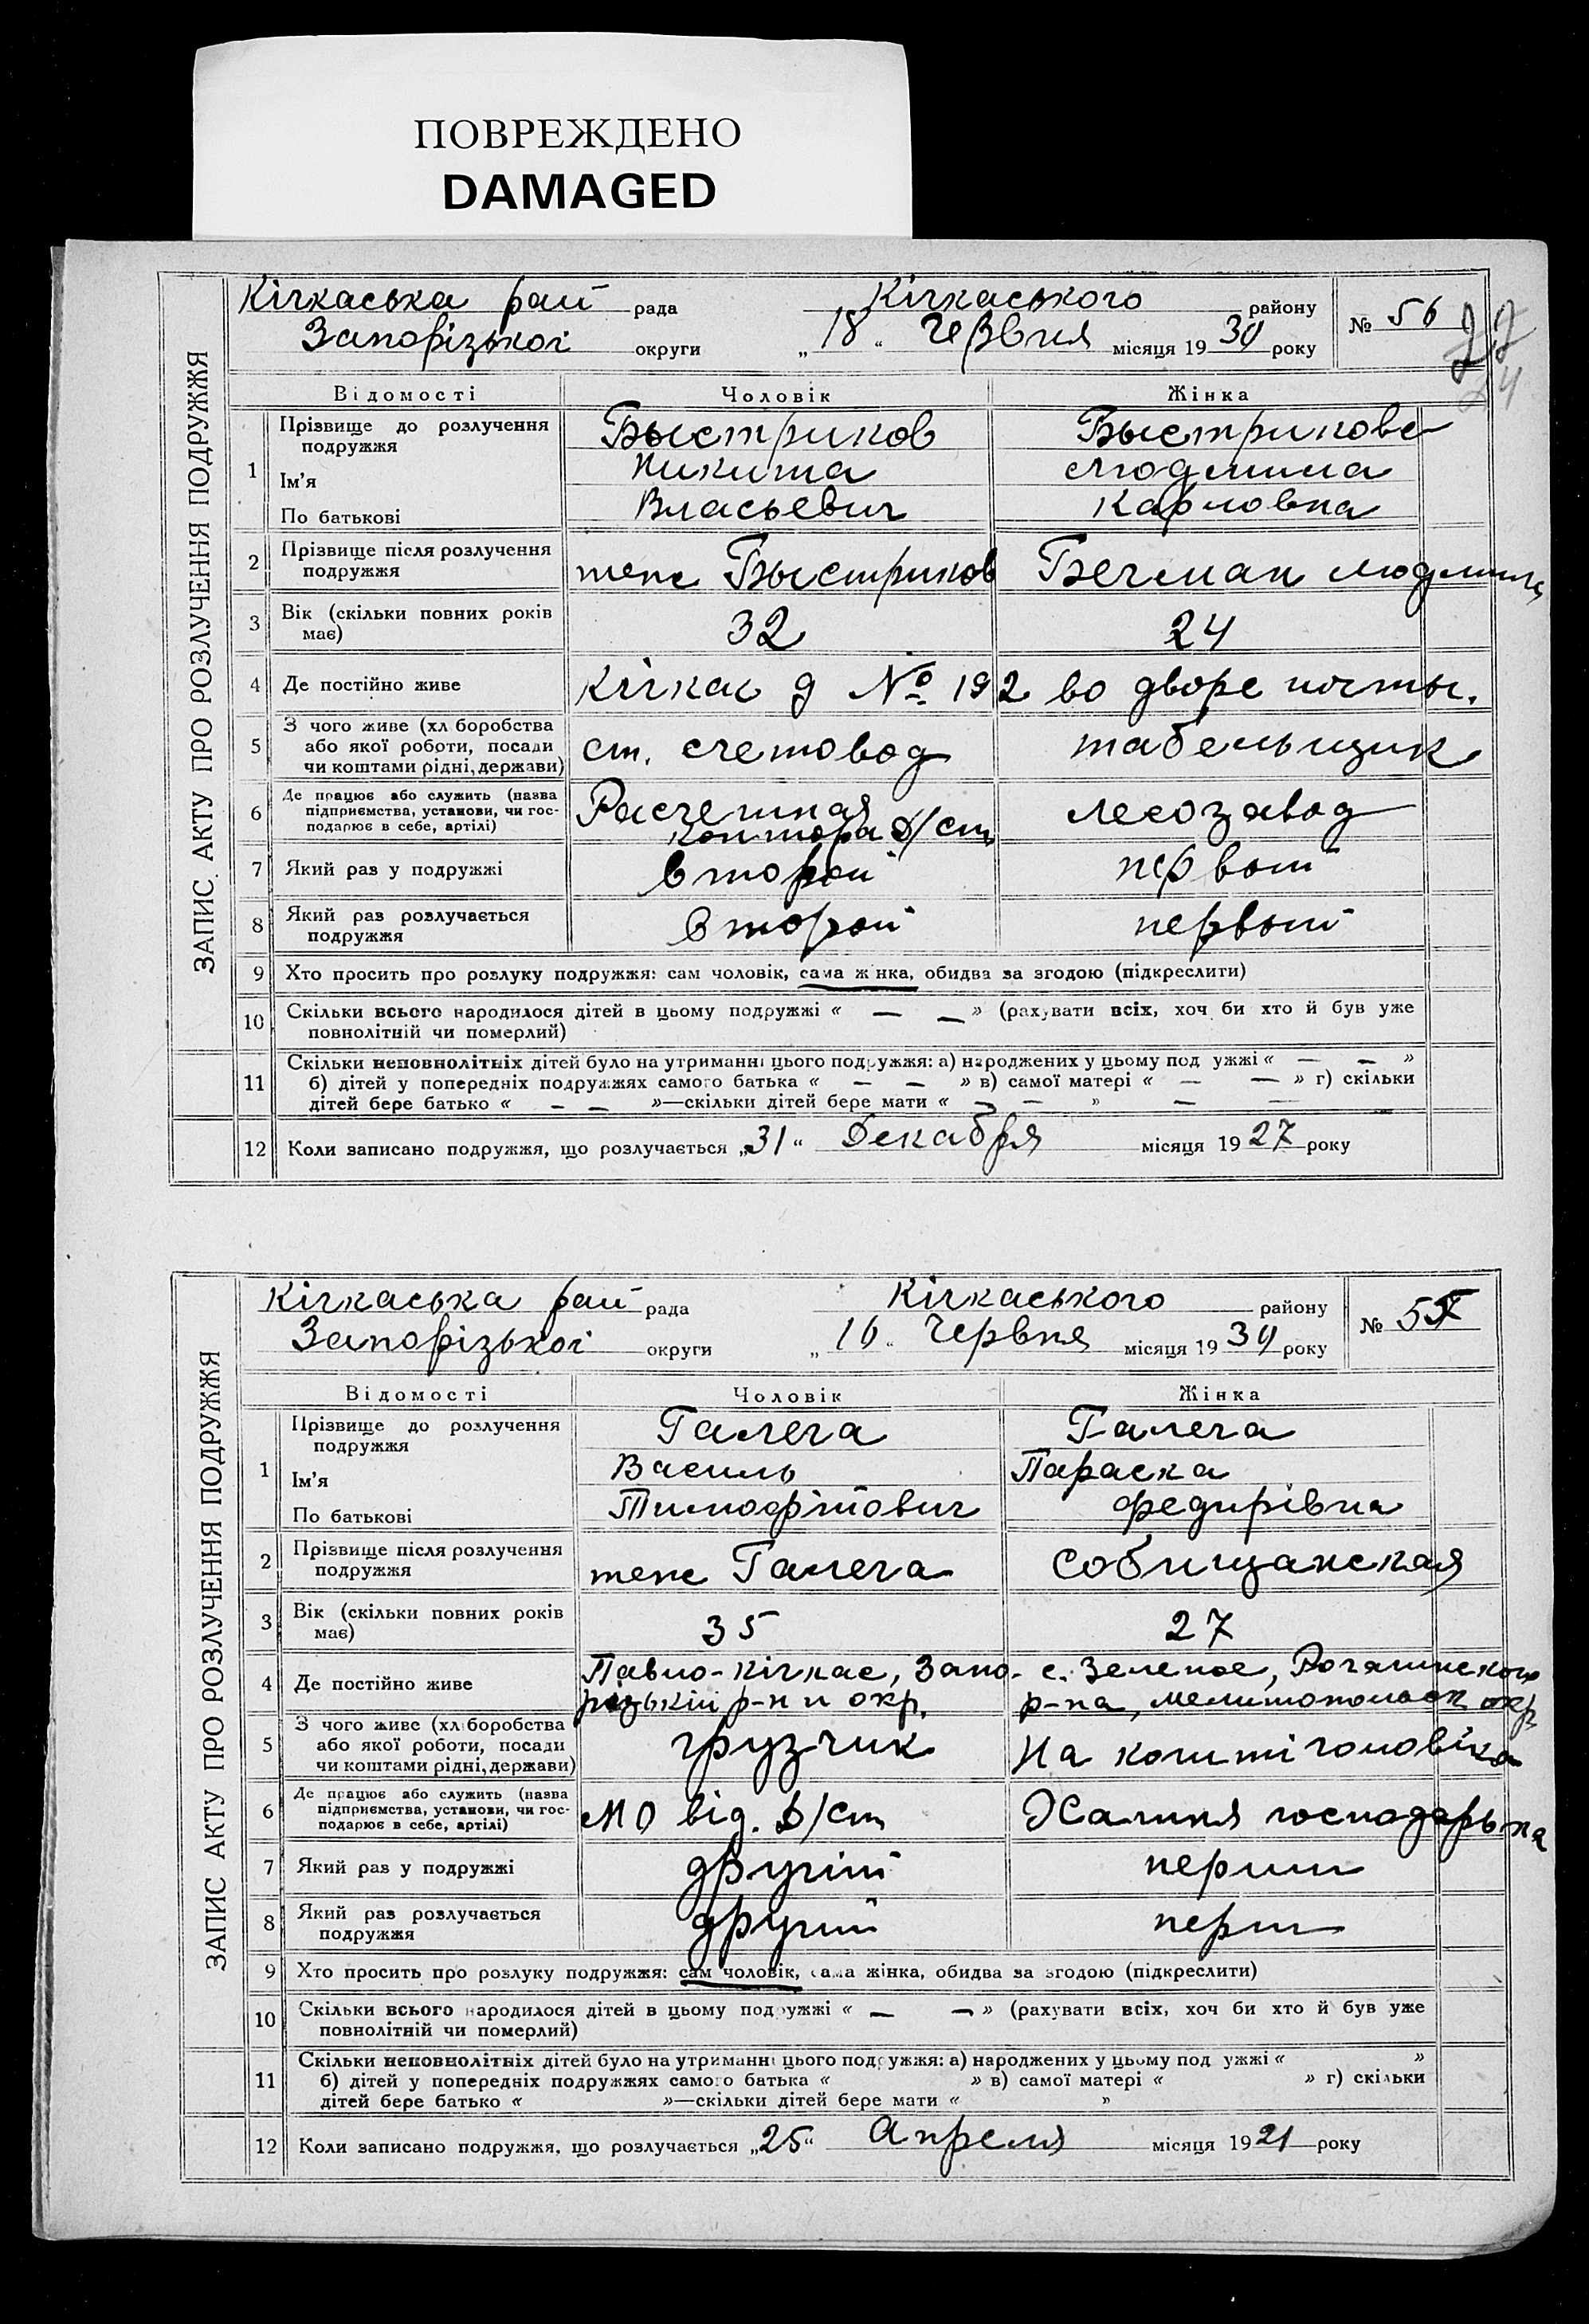 ПОВРЕЖДЕНО
DAMAGED
ЗАПИС АКТУ ПРО РОЗЛУЧЕННЯ ПОДРУЖЖЯ
Кічкаська рай рада Кічкаського району № 56
Запорізької округи „18“ Червня місяця 1930 року
Відомості Чоловік Жінка
1 Прізвище до розлучення подружжя Быстриков Быстрикова
Ім’я Никита Людмила
По батькові Власьевич Карловна
2 Прізвище після розлучення подружжя теже Быстриков Бечман Людмила
3 Вік (скільки повних років має) 32 24
4 Де постійно живе Кічкас д № 192 во дворе почты.
5 З чого живе (хл боробства або якої роботи, посади чи коштами рідні, держави) ст. счетовод табельщик
6 Де працює або служить (назва підприємства, установи, чи господарює в себе, артілі) Расчетная контора Д/ст лесозавод
7 Який раз у подружжі второй первый
8 Який раз розлучається подружжя второй первый
9 Хто просить про розлуку подружжя: сам чоловік, сама жінка, обидва за згодою (підкреслити)
10 Скільки всього народилося дітей в цьому подружжі « — — » (рахувати всіх, хоч би хто й був уже
повнолітній чи померлий)
11 Скільки неповнолітніх дітей було на утриманні цього подружжя: а) народжених у цьому под ужжі « — — »
б) дітей у попередніх подружжях самого батька « — — » в) самої матері « — — » г) скільки
дітей бере батько « — — »—скільки дітей бере мати « — — » — —
12 Коли записано подружжя, що розлучається „31“ Декабря місяця 1927 року
ЗАПИС АКТУ ПРО РОЗЛУЧЕННЯ ПОДРУЖЖЯ
Кічкаська рай рада Кічкаського району № 55
Запорізької округи „16“ Червня місяця 1930 року
Відомості Чоловік Жінка
1 Прізвище до розлучення подружжя Галега Галега
Ім’я Василь Параска
По батькові Тимофійович Федирівна
2 Прізвище після розлучення подружжя теже Галега Собищанская
3 Вік (скільки повних років має) 35 27
4 Де постійно живе Павло-Кічкас, Запо- с. Зеленое, Рогачинского
різький р-н и окр. р-на, Мелитопольск окр
5 З чого живе (хл боробства або якої роботи, посади чи коштами рідні, держави) грузчик На кошті чоловіка
6 Де працює або служить (назва підприємства, установи, чи господарює в себе, артілі) МО від. Д/ст Хатня господарька
7 Який раз у подружжі другий перший
8 Який раз розлучається подружжя другий перш
9 Хто просить про розлуку подружжя: сам чоловік, сама жінка, обидва за згодою (підкреслити)
10 Скільки всього народилося дітей в цьому подружжі « — — » (рахувати всіх, хоч би хто й був уже
повнолітній чи померлий)
11 Скільки неповнолітніх дітей було на утриманні цього подружжя: а) народжених у цьому под ужжі « »
б) дітей у попередніх подружжях самого батька « » в) самої матері « » г) скільки
дітей бере батько « »—скільки дітей бере мати « »
12 Коли записано подружжя, що розлучається „25“ Апреля місяця 1921 року